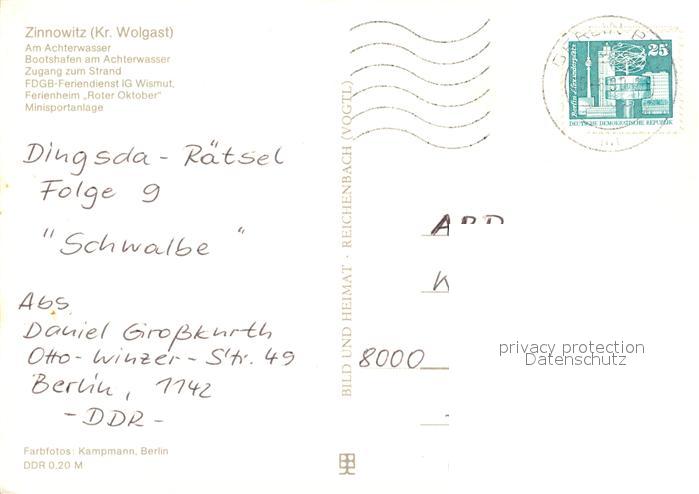 Zinnowitz (Kr. Wolgast)
Am Achterwasser
Bootshafen am Achterwasser
Zugang zum Strand
FDGB-Feriendienst IG Wismut,
Ferienheim „Roter Oktober"
Minisportanlage
Dingsda - Rätsel
Folge 9
"Schwalbe"
Abs
Daniel Großkurth
Otto-Winzer-Str. 49
Berlin, 1142
-DDR-
Farbfotos: Kampmann, Berlin
DDR 0,20 M
BILD UND HEIMAT · REICHENBACH (VOGTL)
BERLIN
25
Berlin, Alexanderplatz
DEUTSCHE DEMOKRATISCHE REPUBLIK
ARD
8000
privacy protection
Datenschutz